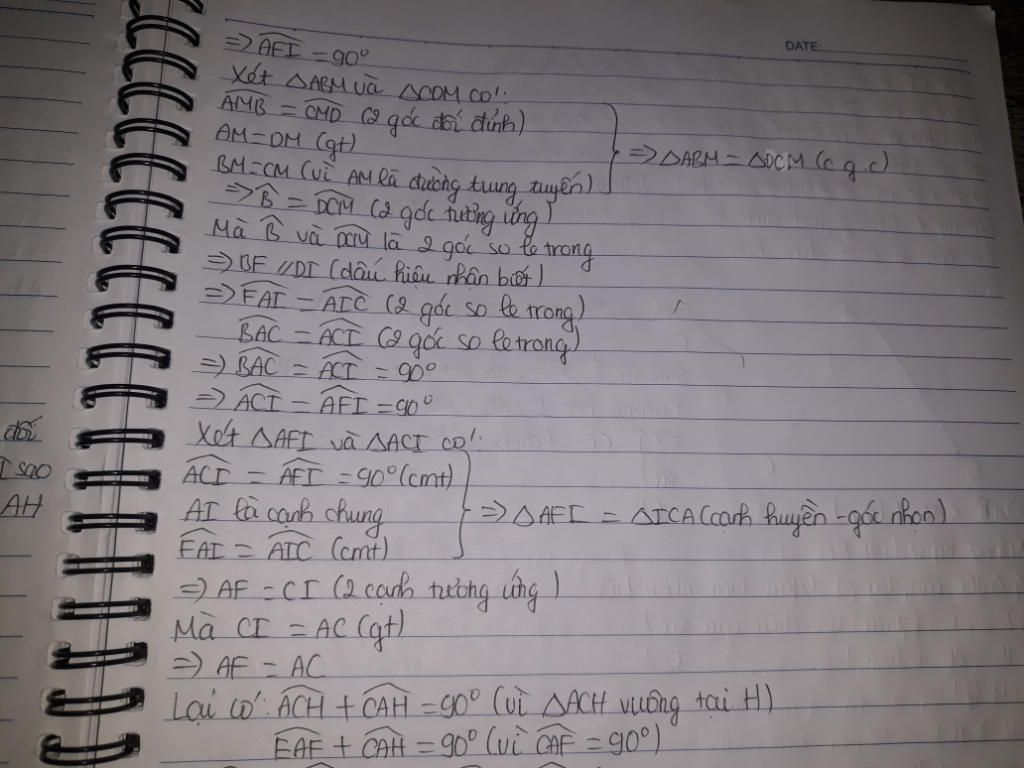 DATE:
=> AFI = 90°
Xét △ABM và △CDM có:
AMB = CMD (2 góc đối đỉnh)
AM = DM (gt)
BM = CM (vì AM là đường trung tuyến)
=> △ABM = △DCM (c.g.c)
=> B = DCM (2 góc tương ứng)
Mà B và DCM là 2 góc so le trong
=> BF // DI (dấu hiệu nhận biết)
=> FAI = AIC (2 góc so le trong)
BAC = ACI (2 góc so le trong)
=> BAC = ACI = 90°
=> ACI = AFI = 90°
Xét △AFI và △ACI có:
ACI = AFI = 90° (cmt)
AI là cạnh chung
FAI = AIC (cmt)
=> △AFI = △ICA (cạnh huyền - góc nhọn)
=> AF = CI (2 cạnh tương ứng)
Mà CI = AC (gt)
=> AF = AC
Lại có: ACH + CAH = 90° (vì △ACH vuông tại H)
EAF + CAH = 90° (vì CAF = 90°)
đối
I sao
AH